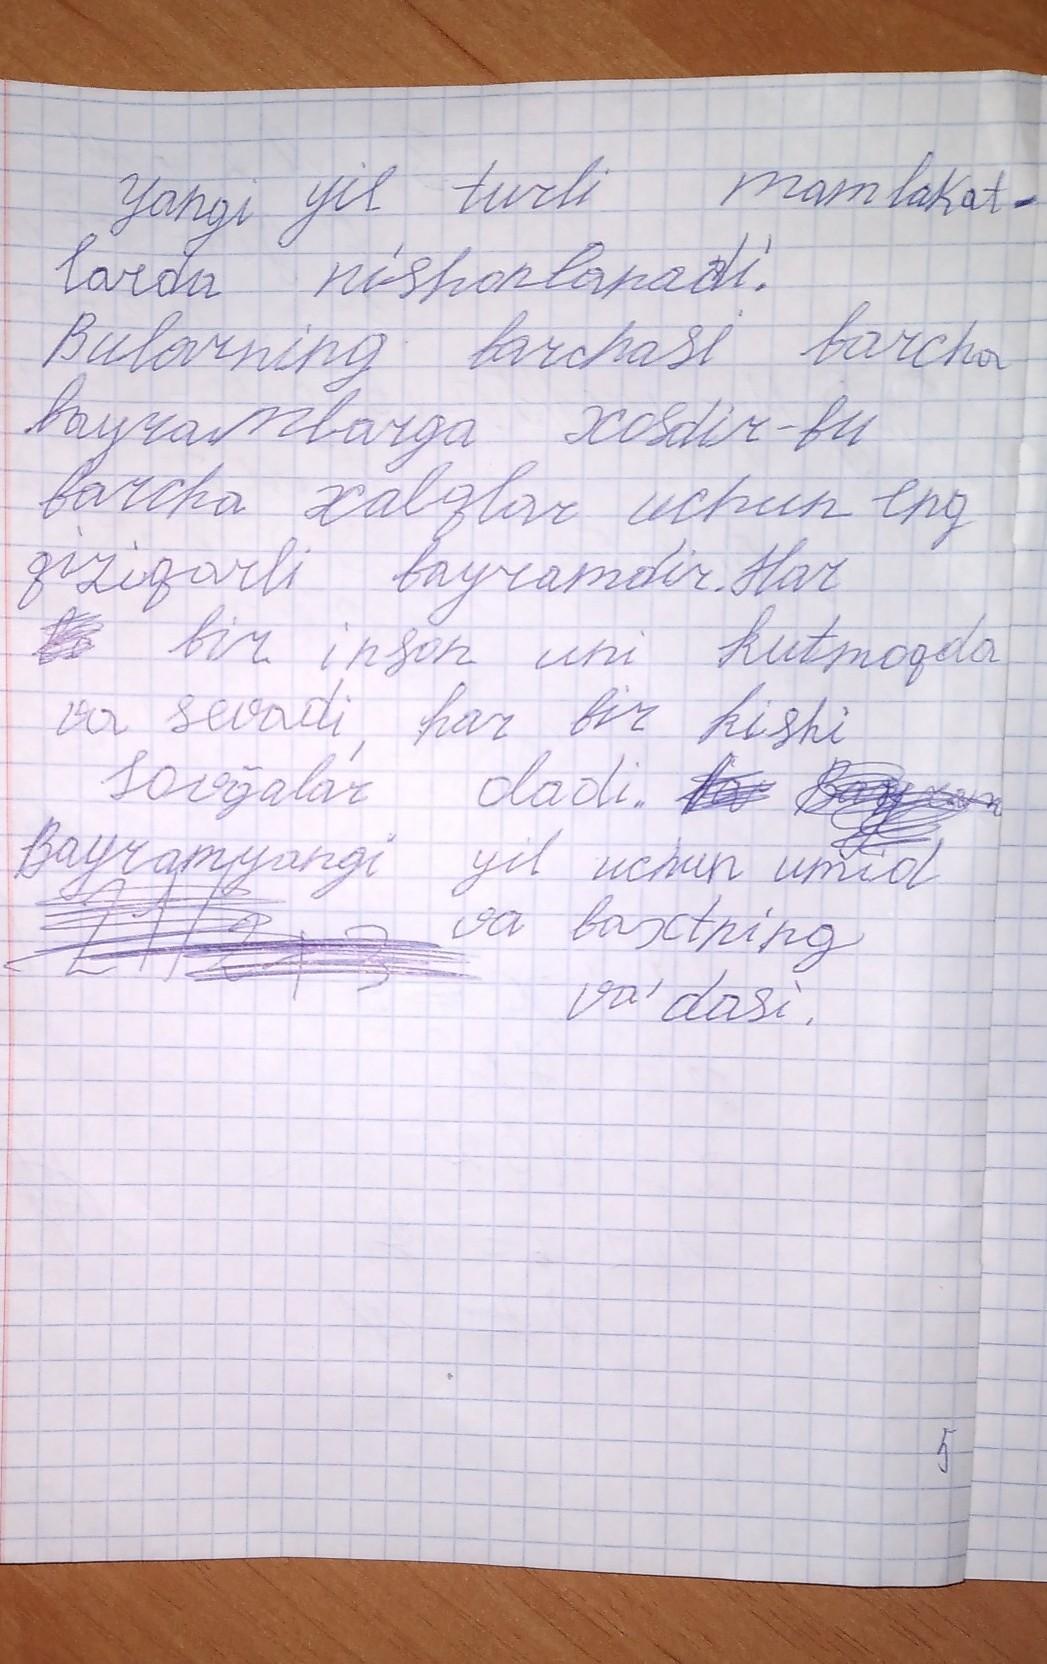 Yangi yil turli mamlakat-
larda nishonlanadi.
Bularning barchasi barcha
bayramlarga xosdir-bu
barcha xalqlar uchun eng
qiziqarli bayramdir. Har
bir inson uni kutmoqda
va sevadi, har bir kishi
sovg̃alar oladi..
Bayram yangi yil uchun umid
va baxtning
va'dasi.
5